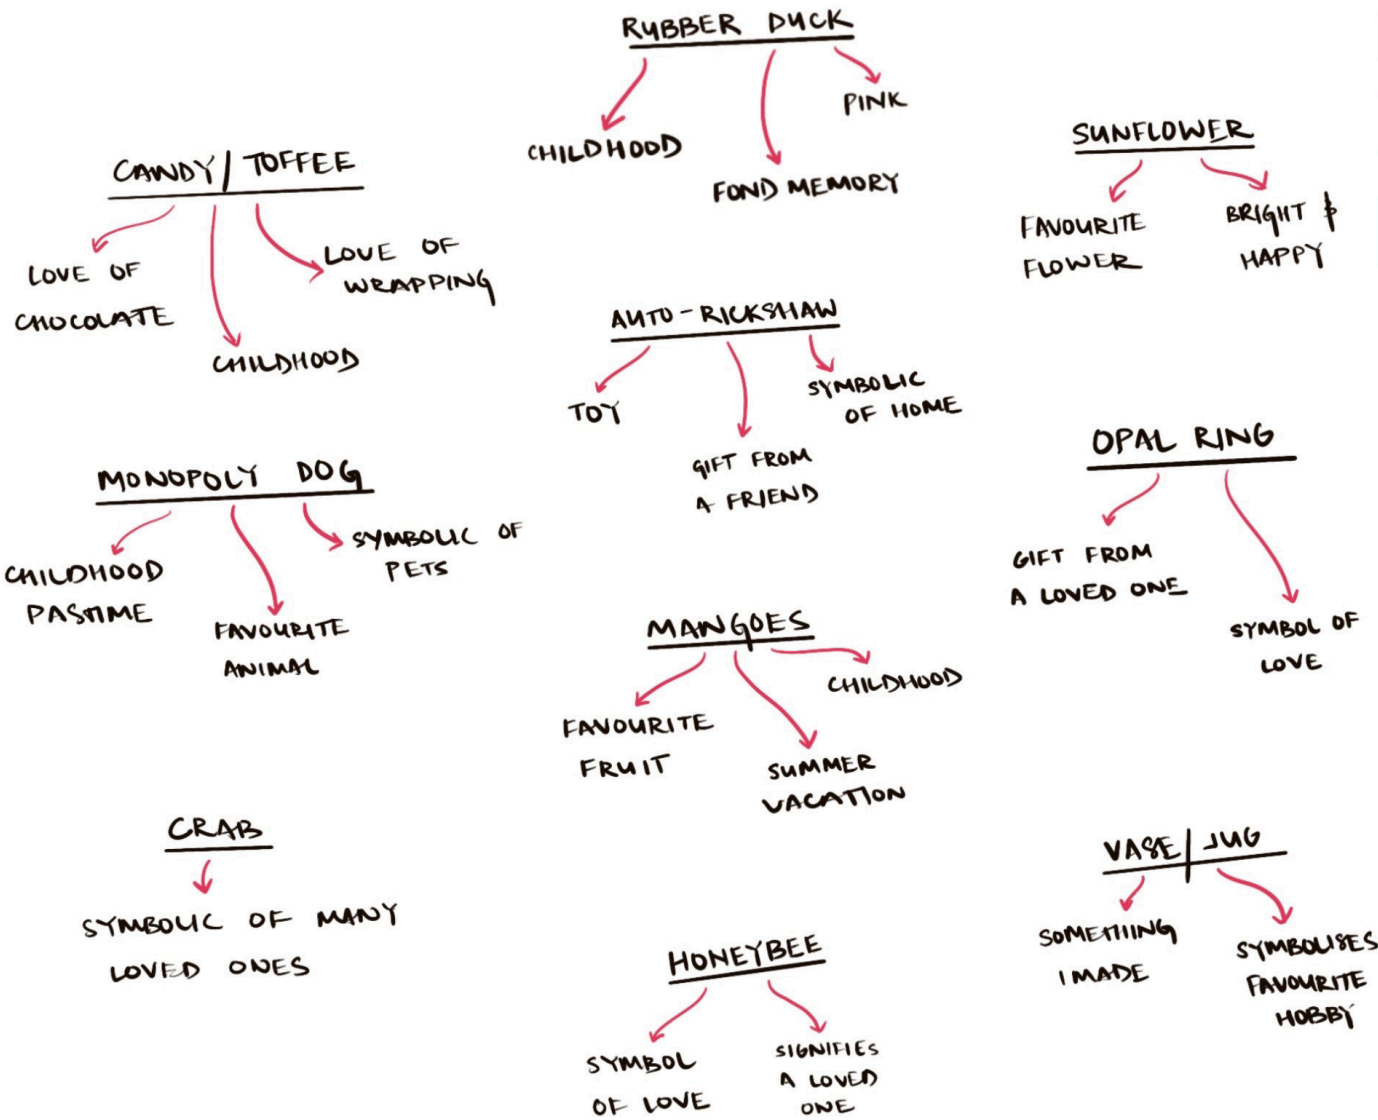 RUBBER DUCK
CHILDHOOD
FOND MEMORY
PINK
CANDY / TOFFEE
LOVE OF
CHOCOLATE
CHILDHOOD
LOVE OF
WRAPPING
SUNFLOWER
FAVOURITE
FLOWER
BRIGHT &
HAPPY
AUTO-RICKSHAW
TOY
GIFT FROM
A FRIEND
SYMBOLIC
OF HOME
MONOPOLY DOG
CHILDHOOD
PASTIME
FAVOURITE
ANIMAL
SYMBOLIC OF
PETS
OPAL RING
GIFT FROM
A LOVED ONE
SYMBOL OF
LOVE
MANGOES
FAVOURITE
FRUIT
SUMMER
VACATION
CHILDHOOD
CRAB
SYMBOLIC OF MANY
LOVED ONES
VASE / JUG
SOMETHING
I MADE
SYMBOLISES
FAVOURITE
HOBBY
HONEYBEE
SYMBOL
OF LOVE
SIGNIFIES
A LOVED
ONE